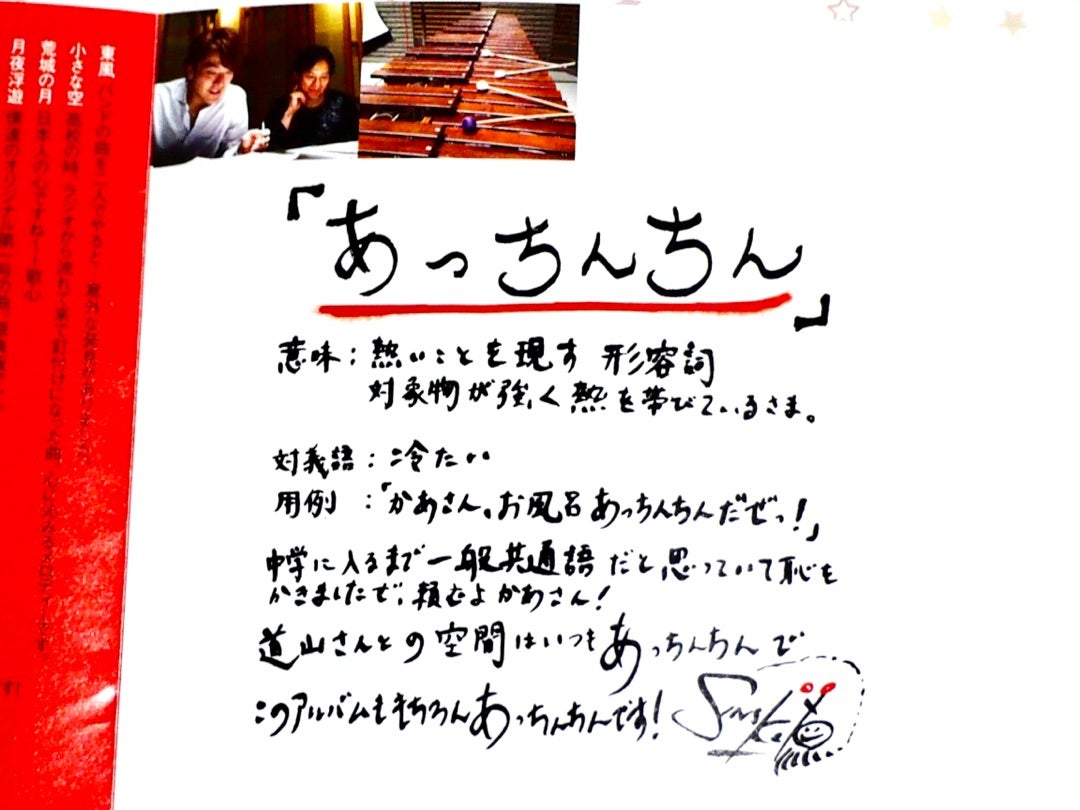 東風 バンドの曲を二人でやると
小さな空 高校の時、ラジオから流れて来て釘付けになった曲。
荒城の月 日本人の心ですね〜歌心
月夜浮遊 僕達のオリジナル第一号の曲。
す!
「あっちんちん」
意味:熱いことを現す 形容詞
対象物が強く熱を帯びているさま。
対義語:冷たい
用例:「かあさん、お風呂あっちんちんだぜっ!」
中学に入るまで一般共通語だと思っていて恥を
かきましたぜ、頼むよかあさん!
道山さんとの空間はいつもあっちんちんで
このアルバムももちろんあっちんちんです!